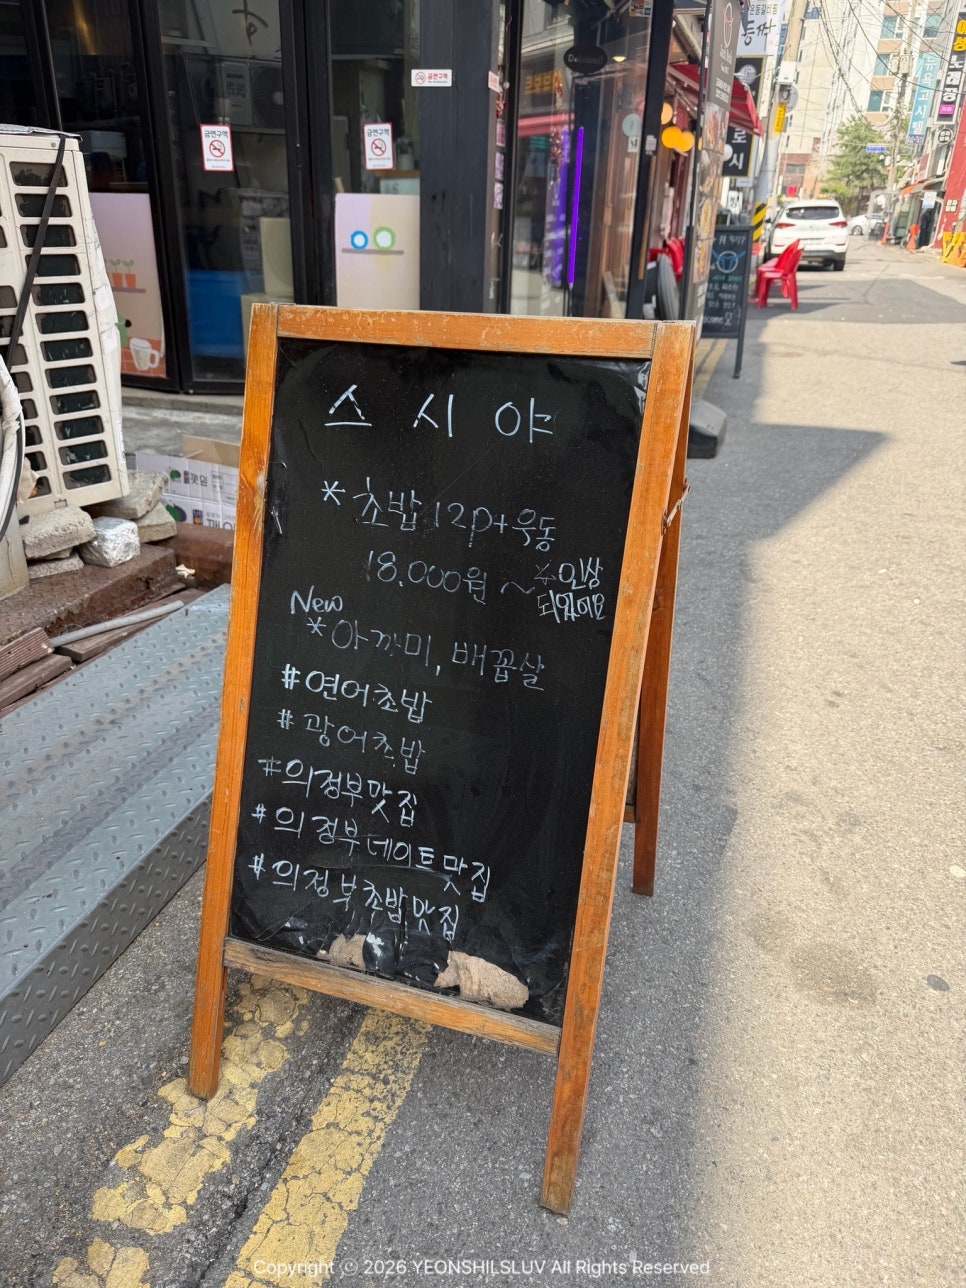 스시야
* 초밥 12p+우동
18.000원 ~ ☆인상
되었어요
New
* 아까미, 배꼽살
#연어초밥
#광어초밥
#의정부맛집
#의정부데이트맛집
#의정부초밥맛집
금연구역
금연구역
금연구역
깻잎
뉴욕고시
노래방
Copyright © 2026 YEONSHILSLUV All Rights Reserved